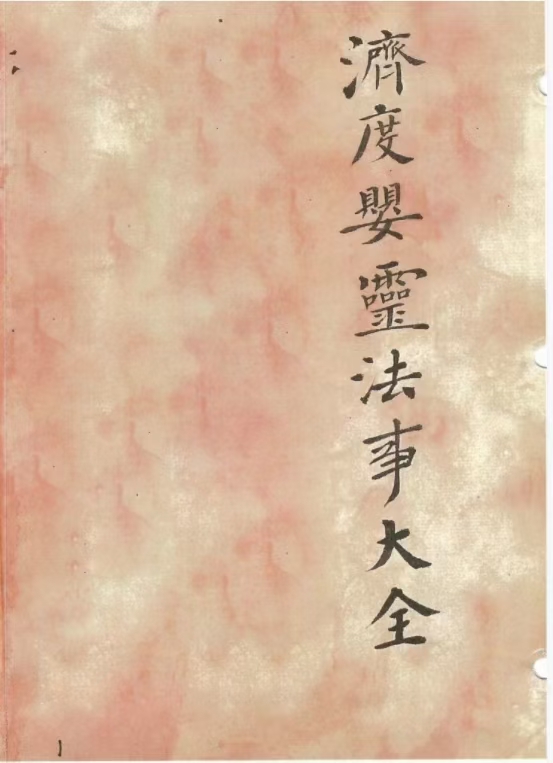 濟度嬰靈法事大全